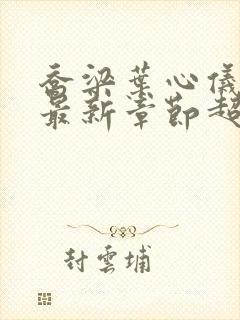 乔梁葉心儀
最新章節超
封雲埔